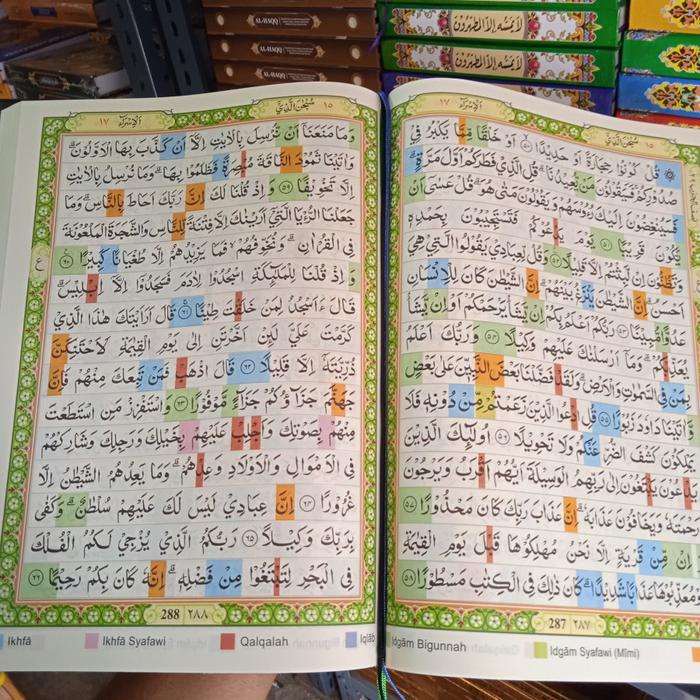 AL-HAQQ
AL-HAQQ
AL-HAQQ
لَا يَمَسُّهُ إِلَّا الْمُطَهَّرُونَ
لَا يَمَسُّهُ إِلَّا الْمُطَهَّرُونَ
١٧ اَلْاِسْرَاء سُبْحٰنَ الَّذِيْ ١٥
قُلْ كُوْنُوْا حِجَارَةً اَوْ حَدِيْدًا ٥٠ اَوْ خَلْقًا مِّمَّا يَكْبُرُ فِيْ
صُدُوْرِكُمْ فَسَيَقُوْلُوْنَ مَنْ يُّعِيْدُنَا قُلِ الَّذِيْ فَطَرَكُمْ اَوَّلَ مَرَّةٍ
فَسَيُنْغِضُوْنَ اِلَيْكَ رُءُوْسَهُمْ وَيَقُوْلُوْنَ مَتٰى هُوَ قُلْ عَسٰى اَنْ
يَّكُوْنَ قَرِيْبًا ٥١ يَوْمَ يَدْعُوْكُمْ فَتَسْتَجِيْبُوْنَ بِحَمْدِهٖ
وَتَظُنُّوْنَ اِنْ لَّبِثْتُمْ اِلَّا قَلِيْلًا ٥٢ وَقُلْ لِّعِبَادِيْ يَقُوْلُوا الَّتِيْ هِيَ
اَحْسَنُ اِنَّ الشَّيْطٰنَ يَنْزَغُ بَيْنَهُمْ اِنَّ الشَّيْطٰنَ كَانَ لِلْاِنْسَانِ
عَدُوًّا مُّبِيْنًا ٥٣ رَبُّكُمْ اَعْلَمُ بِكُمْ اِنْ يَّشَأْ يَرْحَمْكُمْ اَوْ اِنْ يَّشَأْ
يُعَذِّبْكُمْ وَمَا اَرْسَلْنٰكَ عَلَيْهِمْ وَكِيْلًا ٥٤ وَرَبُّكَ اَعْلَمُ
بِمَنْ فِى السَّمٰوٰتِ وَالْاَرْضِ وَلَقَدْ فَضَّلْنَا بَعْضَ النَّبِيّٖنَ عَلٰى بَعْضٍ
وَّاٰتَيْنَا دَاوٗدَ زَبُوْرًا ٥٥ قُلِ ادْعُوا الَّذِيْنَ زَعَمْتُمْ مِّنْ دُوْنِهٖ فَلَا
يَمْلِكُوْنَ كَشْفَ الضُّرِّ عَنْكُمْ وَلَا تَحْوِيْلًا ٥٦ اُولٰۤىِٕكَ الَّذِيْنَ
يَدْعُوْنَ يَبْتَغُوْنَ اِلٰى رَبِّهِمُ الْوَسِيْلَةَ اَيُّهُمْ اَقْرَبُ وَيَرْجُوْنَ
رَحْمَتَهٗ وَيَخَافُوْنَ عَذَابَهٗ اِنَّ عَذَابَ رَبِّكَ كَانَ مَحْذُوْرًا ٥٧
وَاِنْ مِّنْ قَرْيَةٍ اِلَّا نَحْنُ مُهْلِكُوْهَا قَبْلَ يَوْمِ الْقِيٰمَةِ
اَوْ مُعَذِّبُوْهَا عَذَابًا شَدِيْدًا كَانَ ذٰلِكَ فِى الْكِتٰبِ مَسْطُوْرًا ٥٨
287 ٢٨٧
Idgām Bigunnah Idgām Syafawi (Mīmi)
١٧ اَلْاِسْرَاء سُبْحٰنَ الَّذِيْ ١٥
وَمَا مَنَعَنَا اَنْ نُّرْسِلَ بِالْاٰيٰتِ اِلَّا اَنْ كَذَّبَ بِهَا الْاَوَّلُوْنَ
وَاٰتَيْنَا ثَمُوْدَ النَّاقَةَ مُبْصِرَةً فَظَلَمُوْا بِهَا وَمَا نُرْسِلُ بِالْاٰيٰتِ
اِلَّا تَخْوِيْفًا ٥٩ وَاِذْ قُلْنَا لَكَ اِنَّ رَبَّكَ اَحَاطَ بِالنَّاسِ وَمَا
جَعَلْنَا الرُّءْيَا الَّتِيْ اَرَيْنٰكَ اِلَّا فِتْنَةً لِّلنَّاسِ وَالشَّجَرَةَ الْمَلْعُوْنَةَ
فِى الْقُرْاٰنِ وَنُخَوِّفُهُمْ فَمَا يَزِيْدُهُمْ اِلَّا طُغْيَانًا كَبِيْرًا ٦٠
وَاِذْ قُلْنَا لِلْمَلٰۤىِٕكَةِ اسْجُدُوْا لِاٰدَمَ فَسَجَدُوْا اِلَّا اِبْلِيْسَ
قَالَ ءَاَسْجُدُ لِمَنْ خَلَقْتَ طِيْنًا ٦١ قَالَ اَرَءَيْتَكَ هٰذَا الَّذِيْ
كَرَّمْتَ عَلَيَّ لَىِٕنْ اَخَّرْتَنِ اِلٰى يَوْمِ الْقِيٰمَةِ لَاَحْتَنِكَنَّ
ذُرِّيَّتَهٗ اِلَّا قَلِيْلًا ٦٢ قَالَ اذْهَبْ فَمَنْ تَبِعَكَ مِنْهُمْ فَاِنَّ
جَهَنَّمَ جَزَاۤؤُكُمْ جَزَاۤءً مَّوْفُوْرًا ٦٣ وَاسْتَفْزِزْ مَنِ اسْتَطَعْتَ
مِنْهُمْ بِصَوْتِكَ وَاَجْلِبْ عَلَيْهِمْ بِخَيْلِكَ وَرَجِلِكَ وَشَارِكْهُمْ
فِى الْاَمْوَالِ وَالْاَوْلَادِ وَعِدْهُمْ وَمَا يَعِدُهُمُ الشَّيْطٰنُ اِلَّا
غُرُوْرًا ٦٤ اِنَّ عِبَادِيْ لَيْسَ لَكَ عَلَيْهِمْ سُلْطٰنٌ وَكَفٰى
بِرَبِّكَ وَكِيْلًا ٦٥ رَبُّكُمُ الَّذِيْ يُزْجِيْ لَكُمُ الْفُلْكَ
فِى الْبَحْرِ لِتَبْتَغُوْا مِنْ فَضْلِهٖ اِنَّهٗ كَانَ بِكُمْ رَحِيْمًا ٦٦
288 ٢٨٨
Ikhfā Ikhfā Syafawi Qalqalah Iqlāb